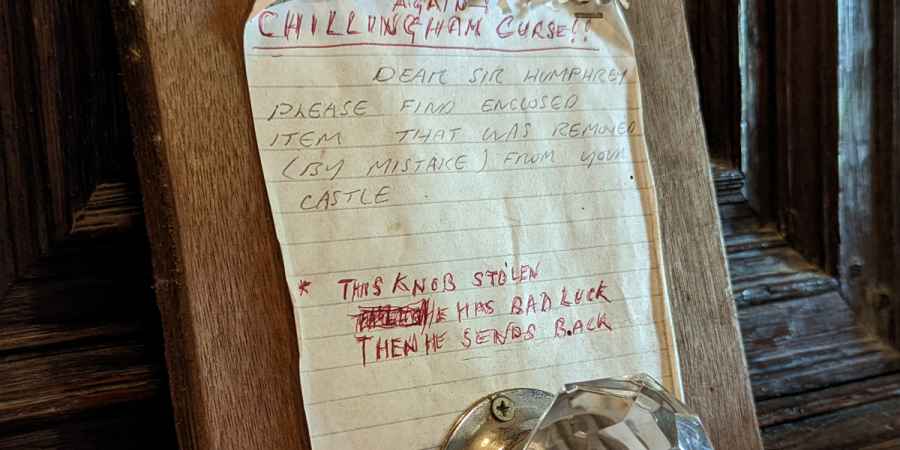 AGAIN!
CHILLINGHAM CURSE!!
DEAR SIR HUMPHREY
PLEASE FIND ENCLOSED
ITEM THAT WAS REMOVED
(BY MISTAKE) FROM YOUR
CASTLE.
* THIS KNOB STOLEN
HE HAS BAD LUCK
THEN HE SENDS BACK